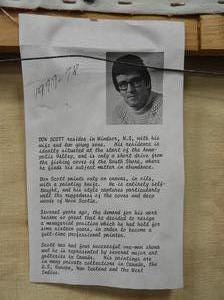 1977-78
DON SCOTT resides in Windsor, N.S, with his
wife and two young sons. His residence is
ideally situated at the start of the Anna-
polis Valley, and is only a short drive from
the fishing coves of the South Shore, where
he finds his subject matter in abundance.
Don Scott paints only on canvas, in oils,
with a painting knife. He is entirely self-
taught, and his style captures particularly
well the ruggedness of the coves and deep
woods of Nova Scotia.
Several years ago, the demand for his work
became so great that he decided to resign
a managerial position which he had held for
some sixteen years, in order to become a
full-time professional painter.
Scott has had four successful one-man shows
and is represented by several major art
galleries in Canada. His paintings are
in many private collections in Canada, the
U.S, Europe, New Zealand and the West
Indies.